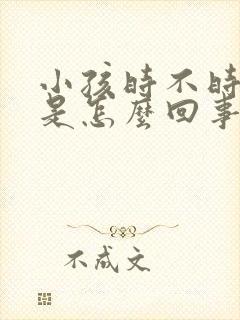 小孩时不时
是怎麼回事
不成文